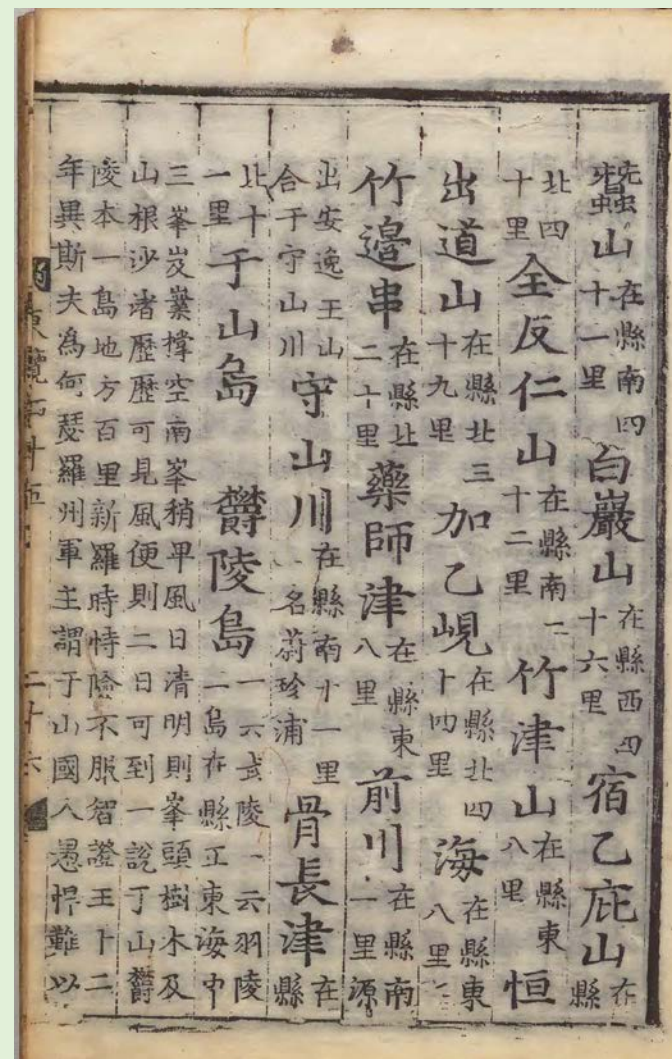 蠶山在縣南四十一里白巖山在縣西四十六里宿乙庇山在縣
北四十里全反仁山在縣南二十二里竹津山在縣東八里恒
出道山在縣北三十九里加乙峴在縣北四十四里海在縣東八里
竹邊串在縣北二十里藥師津在縣東八里前川在縣南一里源
出安逸王山合于守山川守山川在縣南十一里一名蔚珍浦骨長津在縣
北十一里于山島欝陵島一云武陵一云羽陵二島在縣正東海中
三峯岌嶪撑空南峯稍卑風日清明則峯頭樹木及
山根沙渚歷歷可見風便則二日可到一說于山欝
陵本一島地方百里新羅時恃險不服智證王十二
年異斯夫爲何瑟羅州軍主謂于山國人愚悍難以
二十六